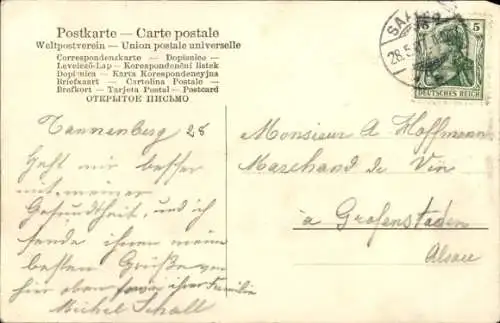 Postkarte — Carte postale
Weltpostverein — Union postale universelle
Correspondenzkarte — Dopisnice —
Levelező-Lap — Korespondenční lístek
Dopisnica — Karta Korespondencyjna
Briefkaart — Cartolina Postale —
Brefkort — Tarjeta Postal — Postcard
ОТКРЫТОЕ ПИСЬМО
5
DEUTSCHES REICH
28.5
Tannenberg 28
Geht mir besser
mit meiner
Gesundheit, und ich
sende ihnen meine
besten Grüße von
hier oben sowie ihrer Familie
Michel Schall
Monsieur A Hoffmann
Marchand de Vin
à Grafenstaden
Alsace